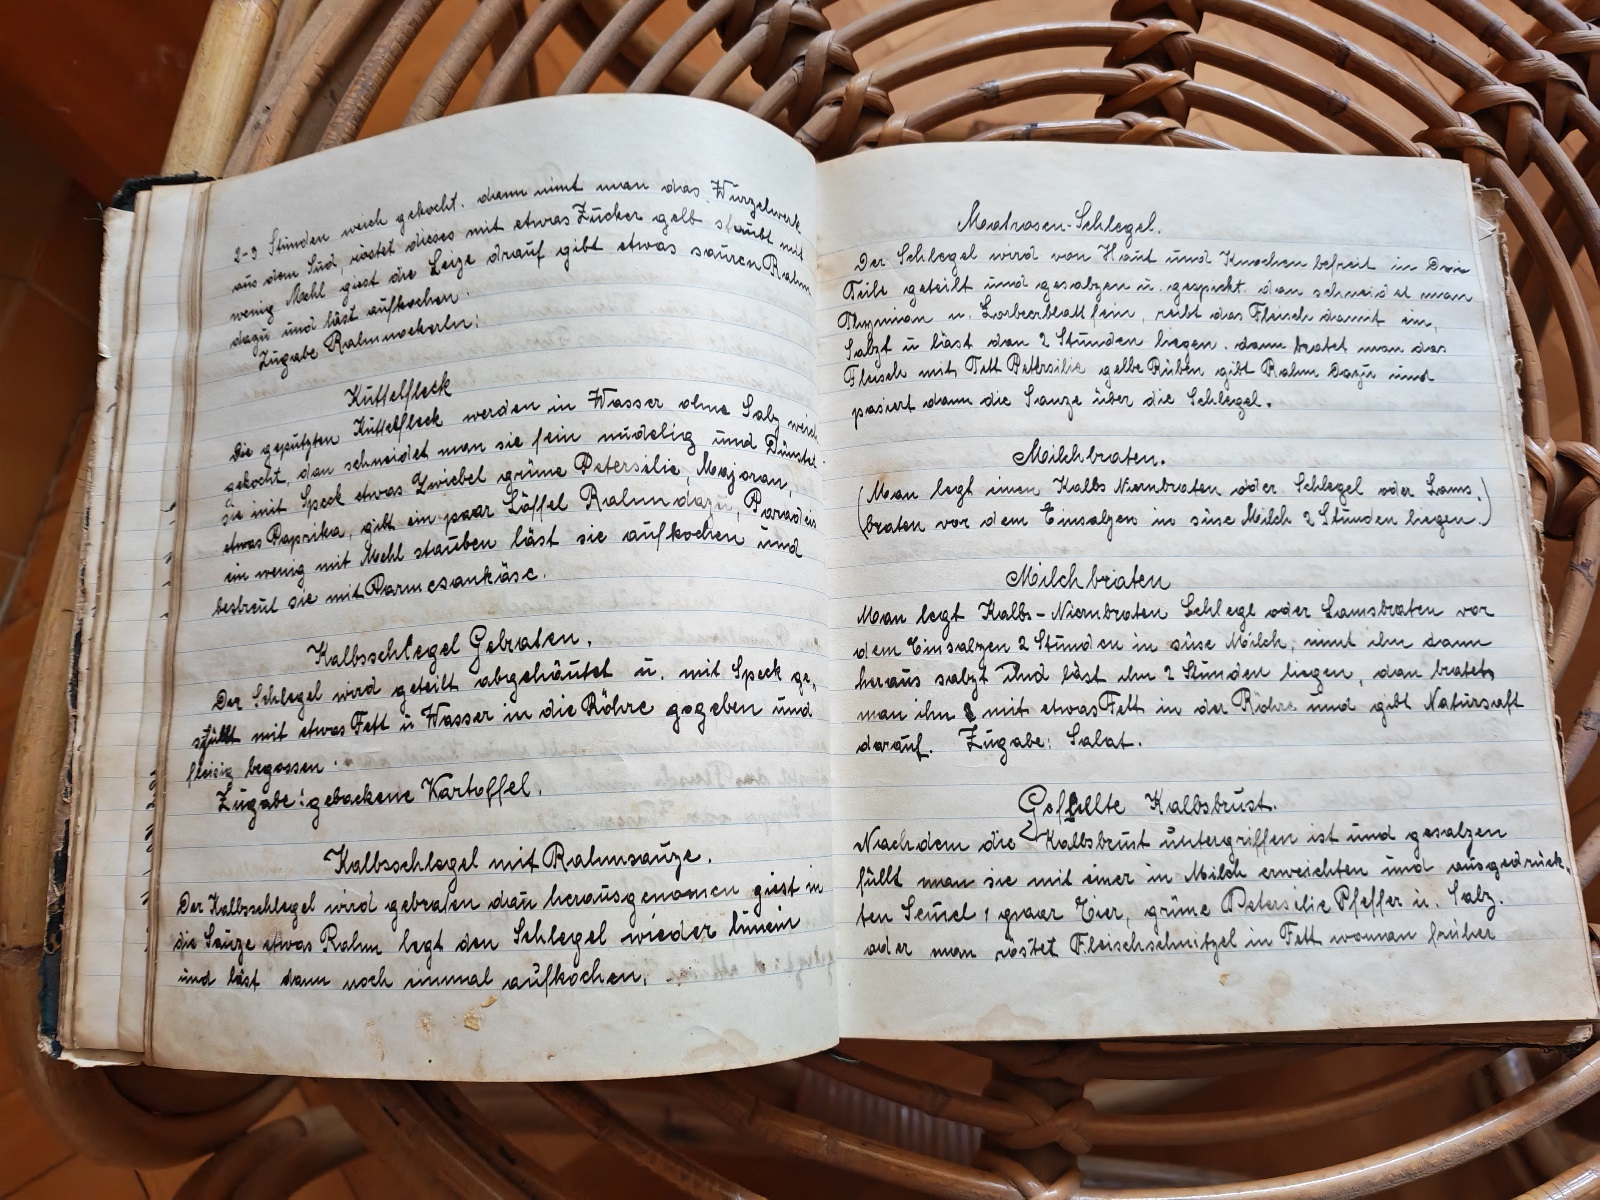 2-3 Stunden weich gekocht. dann nimt man das Wurzelwerk
aus dem Sud, röstet dieses mit etwas Zucker gelb staubt mit
wenig Mehl giest die Beize drauf gibt etwas sauren Rahm
dazu und läst aufkochen.
Zugabe Rahmnockerln!
Kuttelfleck
Die geputzten Kuttelfleck werden in Wasser ohne Salz weich
gekocht, dan schneidet man sie fein nudelig und Dünstet
sie mit Speck etwas Zwiebel grüne Petersilie, Majoran,
etwas Paprika, gibt ein paar Löffel Rahm dazu, Paradeis
ein wenig mit Mehl stauben läst sie aufkochen und
bestreut sie mit Parmesankäse.
Kalbsschlegel Gebraten.
Der Schlegel wird geteilt abgehäutet u. mit Speck ge,
füllt mit etwas Fett u Wasser in die Röhre gegeben und
fleisig begossen.
Zugabe: gebackene Kartoffel.
Kalbsschlegel mit Rahmsauze.
Der Kalbsschlegel wird gebraten dan herausgenomen giest in
die Sauze etwas Rahm legt den Schlegel wieder hinein
und läst dann noch einmal aufkochen.
Matrosen-Schlegel.
Der Schlegel wird von Haut und Knochen befreit in Drei
Teile geteilt und gesalzen u. gespickt. dan schneidet man
Thymian u. Lorbeerblatt fein, reibt das Fleisch damit ein,
Salzt u läst dan 2 Stunden liegen. dann bratet man das
Fleisch mit Fett Petersilie gelbe Rüben gibt Rahm Dazu und
pasiert dann die Sauze über die Schlegel.
Milchbraten.
(Man legt einen Kalbs Niernbraten oder Schlegel oder Lams,
braten vor dem Einsalzen in süse Milch 2 Stunden liegen.)
Milchbraten
Man legt Kalbs-Niernbraten Schlegl oder Lamsbraten vor
dem Einsalzen 2 Stunden in süse Milch, nimt ihn dann
heraus salzt und läst ihn 2 Stunden liegen, dan bratet
man ihn mit etwas Fett in der Röhre und gibt Natursaft
darauf. Zugabe: Salat.
Gefüllte Kalbsbrust.
Nachdem die Kalbsbrust untergriffen ist und gesalzen
füllt man sie mit einer in Milch erweichten und ausgedrück,
ten Semel, paar Eier, grüne Petersilie Pfeffer u. Salz.
oder man röstet Fleischschnitzel in Fett woman früher